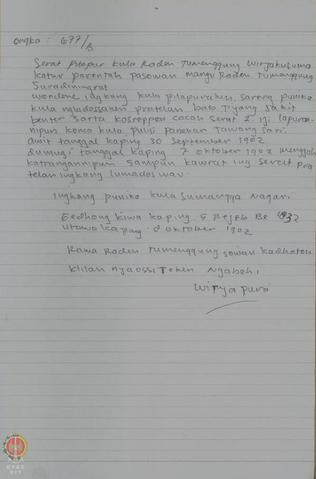 Ongka : 677/B
Serat pilapur kula Raden Tumenggung Wirjakusuma
katur parentah pasowan mangu Raden Tumenggung
Suradiningrat
Wondene ingkang kula pilapuraken, sareng punika
kula ngladosaken pratelan bab Tiyang sakit
benter sarta kasreppen cacah serat 2 iji lapuran
nipun konca kula pulisi Panekar Tawang Sari.
amit tanggal kaping 30 September 1902
dumugi tanggal kaping 7 oktober 1902
katranganipun sampun kawrat ing Serat Pra
telan ingkang lumados wau
Ingkang punika kula sumangga Nagari
Gedhong Kiwa kaping 5 Rejeb Be 1832
utawi kaping 8 oktober 1902
Rama Raden Tumenggung sowan kadhaton
klilan ngaossi Teken Ngabehi
Wiryapuri